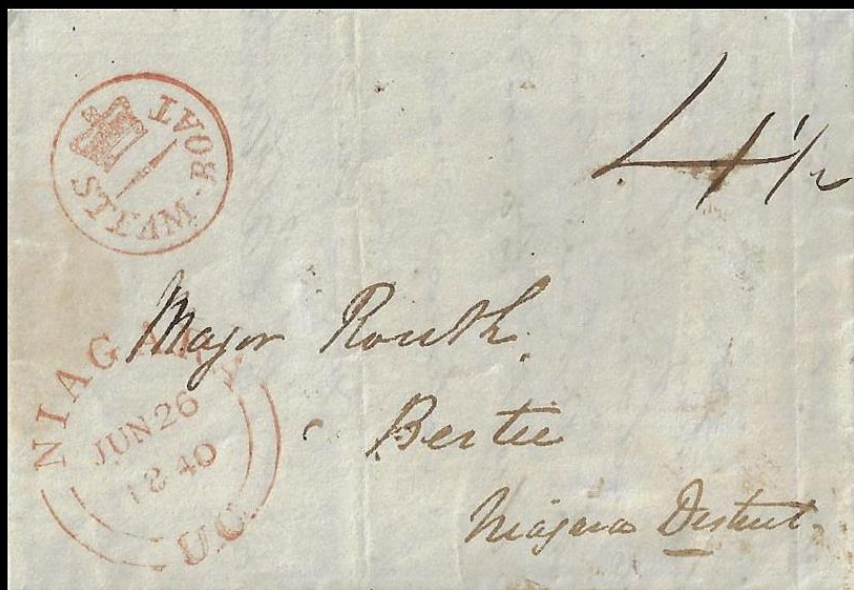 STEAM·BOAT
4 1/2
Major Routh.
Bertie
Niagara District.
NIAGARA
JUN 26
1840
U.C.